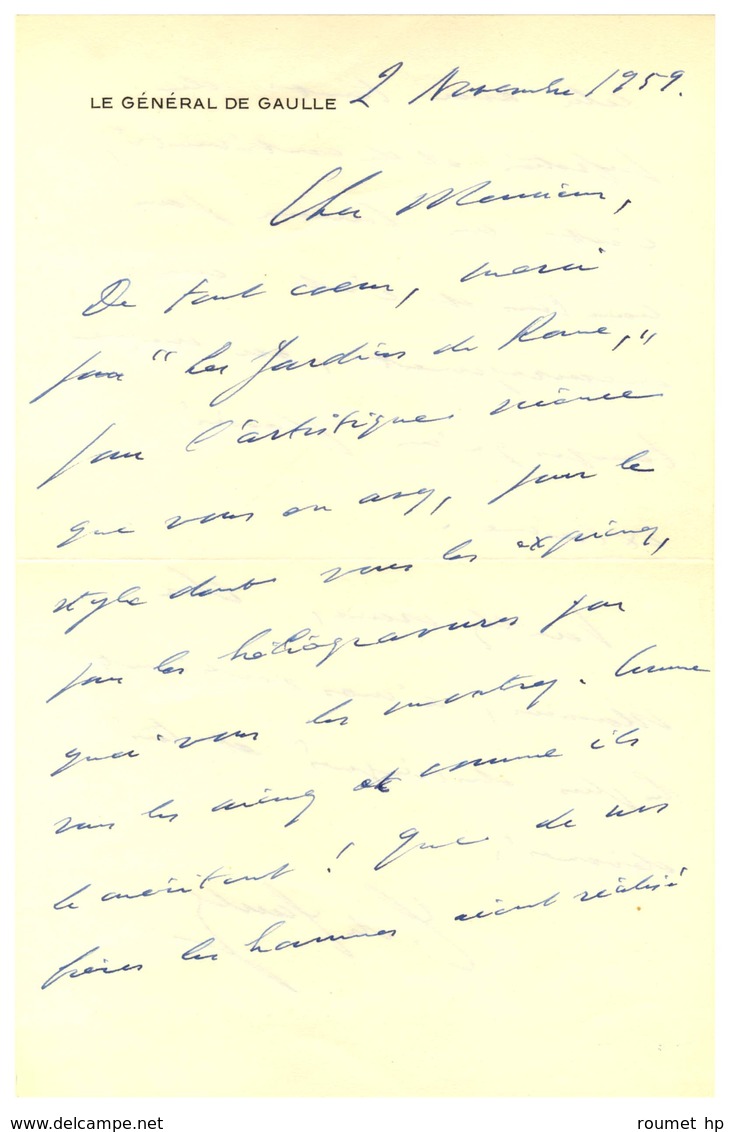 LE GÉNÉRAL DE GAULLE 2 Novembre 1959.
Cher Monsieur,
De tout coeur, merci
pour "Les Jardins de Rome,"
pour l'artistique science
que vous en avez, pour le
style dont vous les exprimez,
pour les héliogravures par
quoi vous les montrez. Comme
vous les aimez et comme ils
le méritent ! Que de nos
frères les hommes aient réalisé
www.delcampe.net
roumet hp